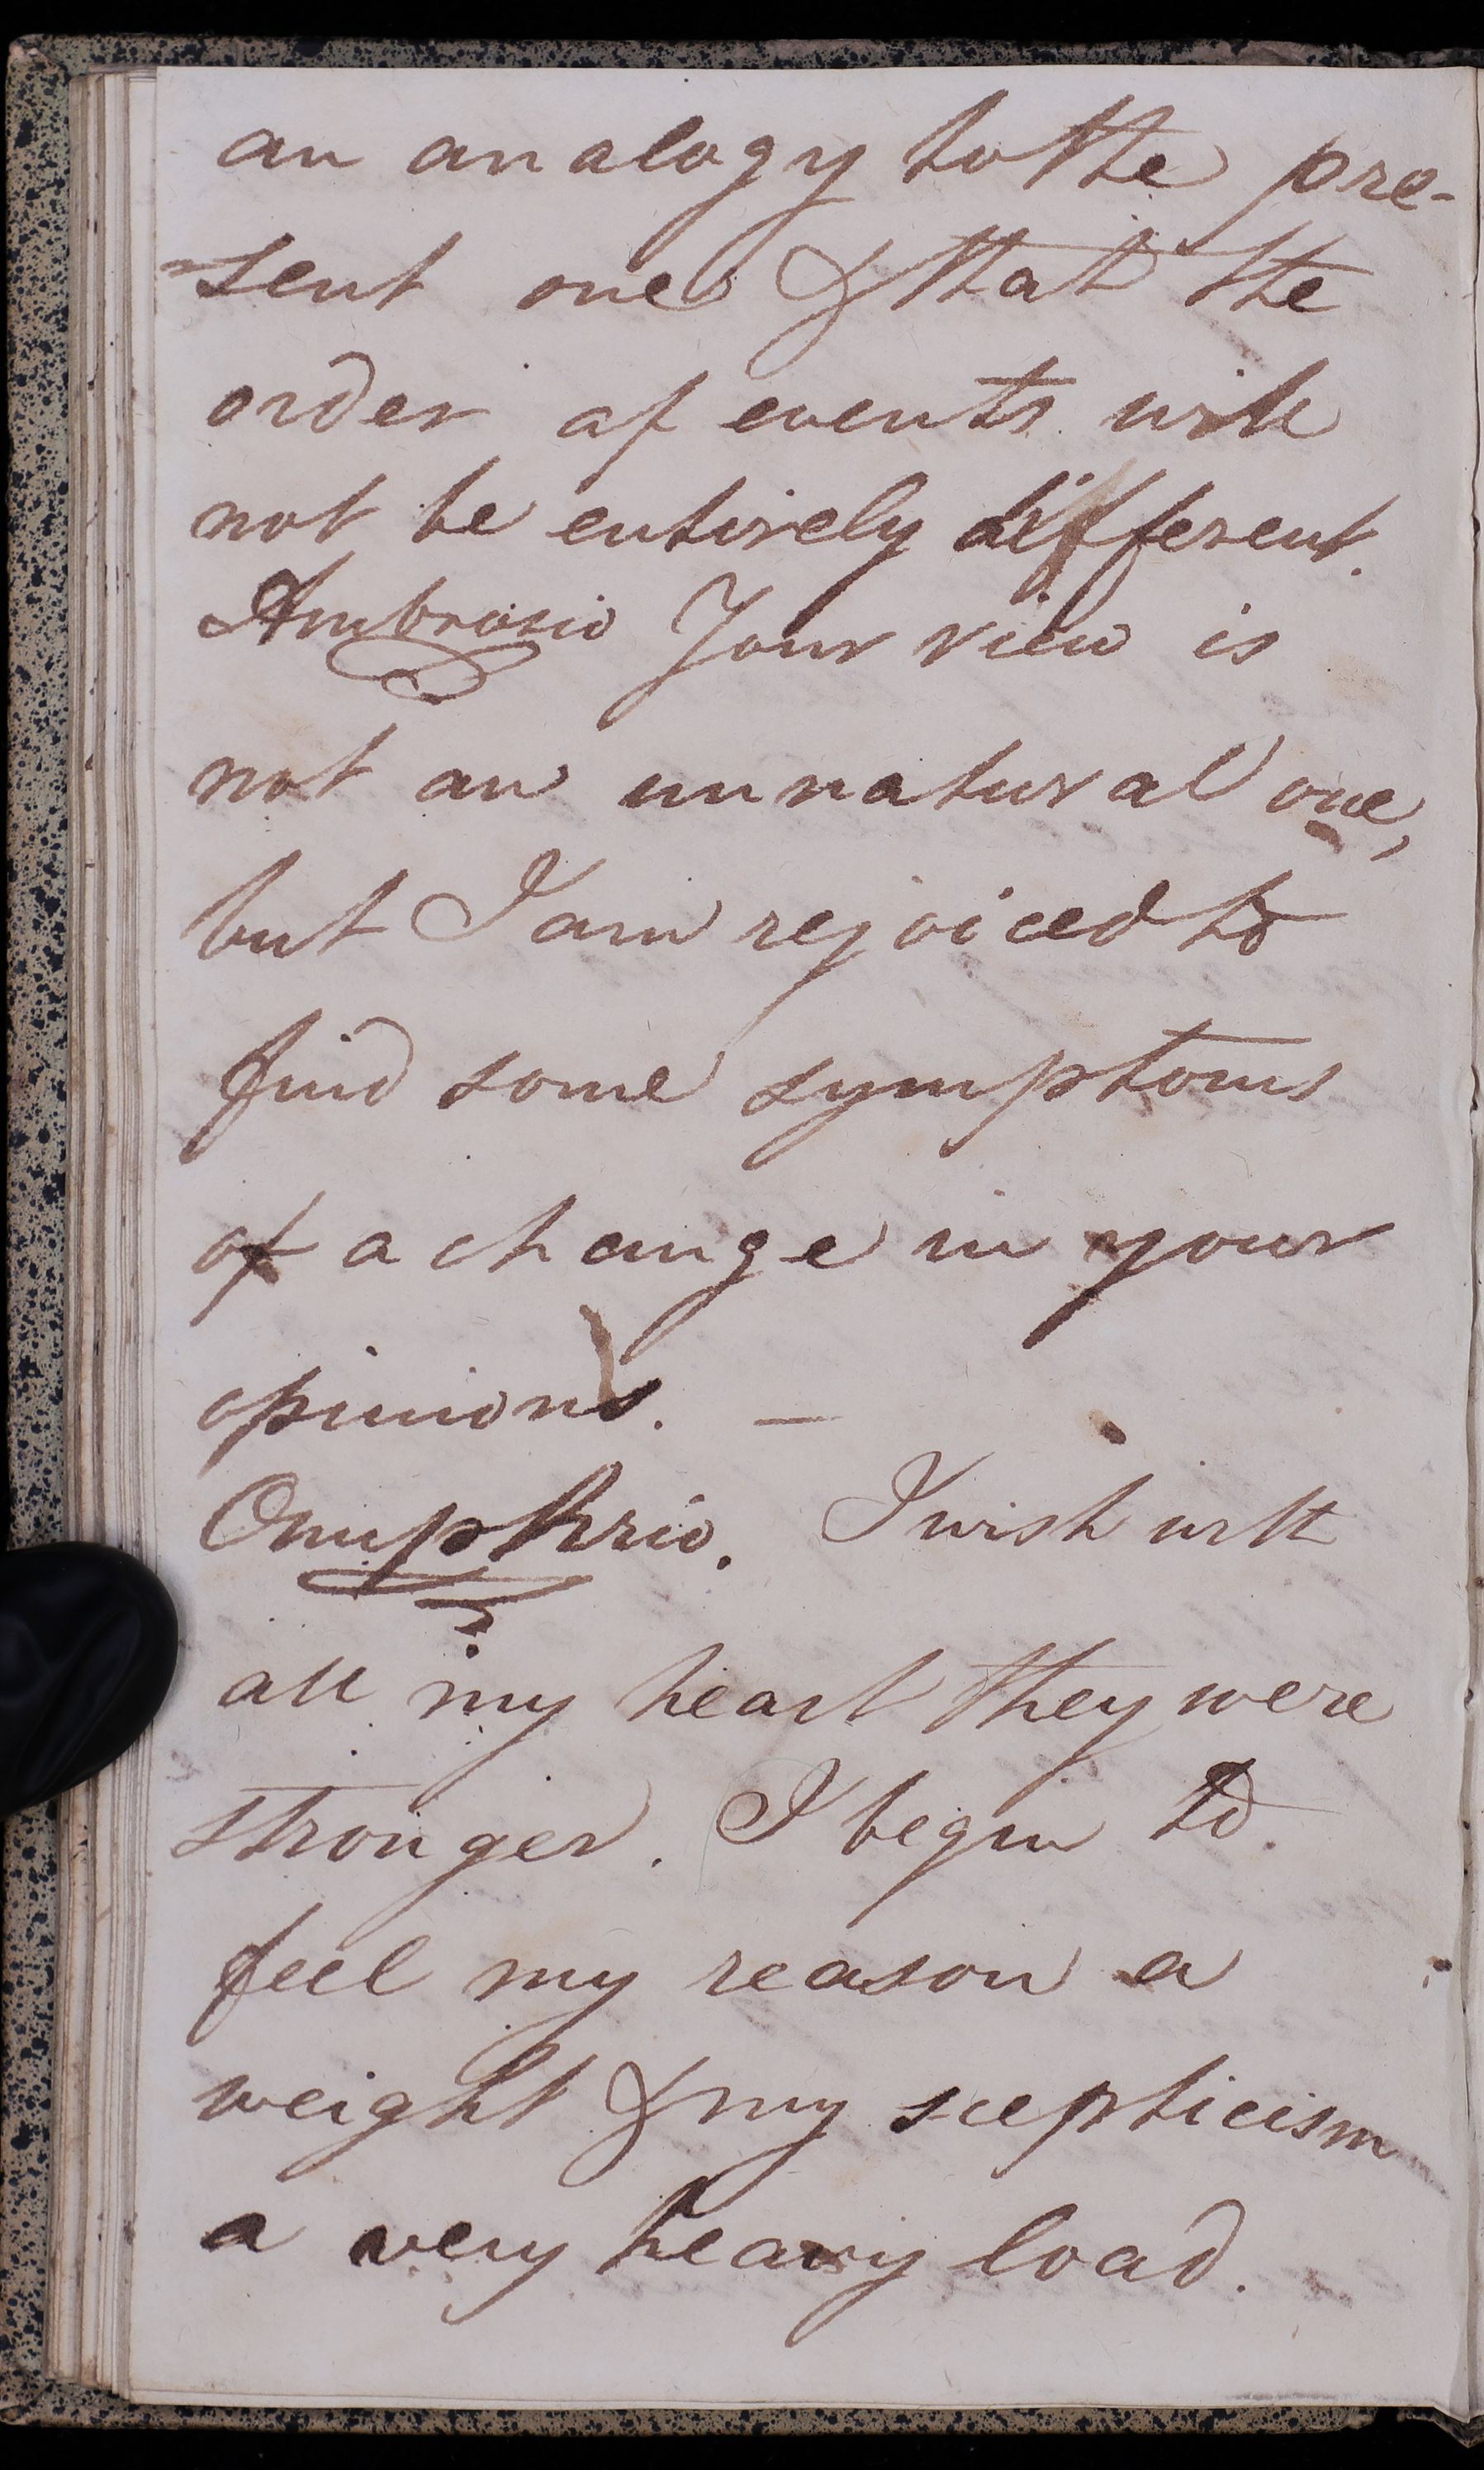 an analogy to the pre-
-sent one & that the
order of events will
not be entirely different.
Ambrosio Your view is
not an unnatural one,
but I am rejoiced to
find some symptoms
of a change in your
opinions. —
Onuphrio. I wish with
all my heart they were
stronger. I begin to
feel my reason a
weight & my scepticism
a very heavy load.